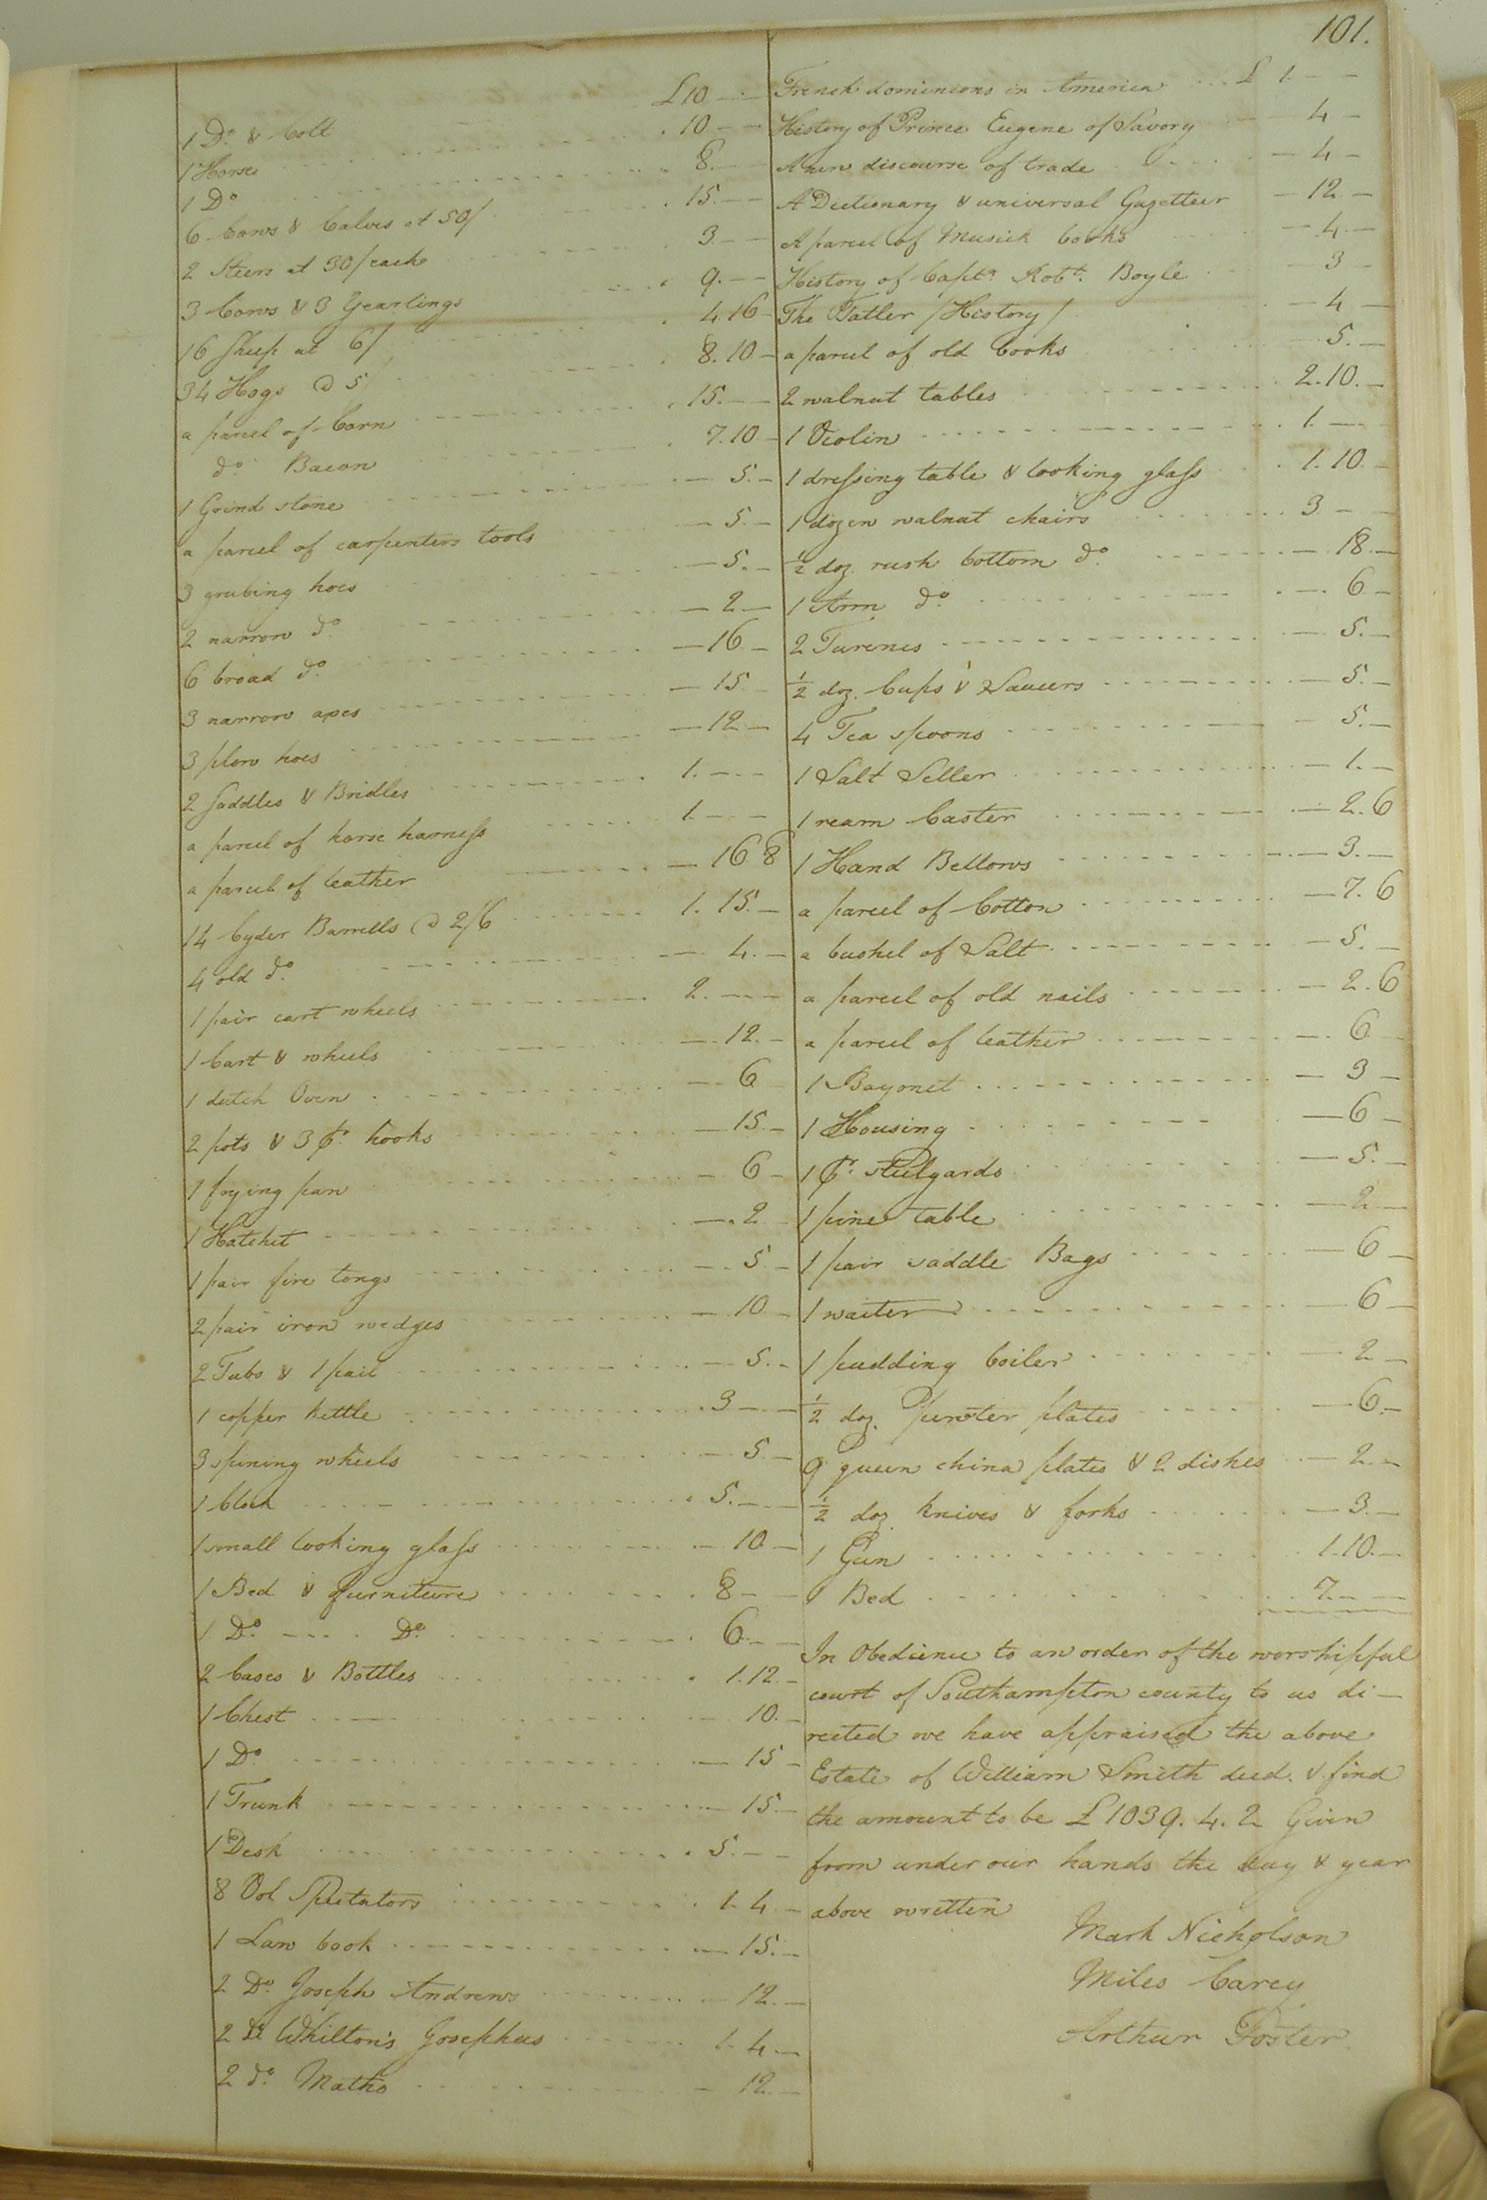 101.
1 Do. & Colt £10 - -
1 Horse 10 - -
1 Do 8. - -
6 Cows & Calves at 50/ 15. - -
2 Steers at 30/ each 3 - -
3 Cows & 3 Yearlings 9. - -
16 Sheep at 6/ 4.16 -
34 Hogs @ 5/ 8.10. -
a parcel of Corn 15. - -
do. Bacon 7.10 -
1 Grind stone - 5. -
a parcel of carpenters tools - 5. -
3 grubing hoes - 5. -
2 narrow do. - 2 -
6 broad do. - 16 -
3 narrow axes - 15 -
3 plow hoes - 12 -
2 Saddles & Bridles 1. - -
a parcel of horse harness 1. - -
a parcel of leather - 16 8
14 Cyder Barrells @ 2/6 1. 15. -
4 old do. - 4. -
1 pair cart wheels 2. - -
1 Cart & wheels - 12. -
1 dutch Oven - 6
2 pots & 3 pr. hooks - 15. -
1 frying pan - 6 -
1 Hatchet - 2
1 pair fire tongs - 5 -
2 pair iron wedges - 10 -
2 Tubs & 1 pail - 5. -
1 copper kettle 3 - -
3 spining wheels - 5 -
1 Clock 5. - -
1 small looking glass - 10 -
1 Bed & furniture 8 - -
1 Do. - - - Do. 6 - -
2 Cases & Bottles 1.12. -
1 Chest - 10. -
1 Do - 15 -
1 Trunk - 15. -
1 Desk 5. - -
8 Vol Spectators 1. 4. -
1 Law book - 15. -
2 Do. Joseph Andrews - 12. -
2 Do Whilton's Josephus 1. 4. -
2 do. Maths - 12. -
French dominions in America £ 1. - -
History of Prince Eugene of Savory - 4 -
A new discourse of trade - 4 -
A Dictionary & universal Gazetteer - 12 -
A parcel of Musick books - 4. -
History of Captn. Robt. Boyle - 3 -
The Tatler /History/ - 4 -
a parcel of old books 5. -
2 walnut tables 2.10. -
1 Violin 1. - -
1 dressing table & looking glass 1.10. -
1 dozen walnut chairs 3 - -
½ doz. rush bottom do. - 18. -
1 Arm do. - 6 -
2 Turenes - 5. -
½ doz. Cups & Saucers - 5. -
4 Tea spoons - 5. -
1 Salt Seller - 1. -
1 ream Caster - 2. 6
1 Hand Bellows - 3. -
a parcel of Cotton - 7. 6
a bushel of Salt - 5. -
a parcel of old nails - 2. 6
a parcel of leather - 6
1 Bayonet - 3 -
1 Housing - 6 -
1 pr. stilyards - 5. -
1 pine table - 2 -
1 pair saddle Bags - 6 -
1 waiter - 6 -
1 pudding boiler - 2 -
½ doz. pewter plates - 6. -
9 queen china plates & 2 dishes - 2. -
½ doz. knives & forks - 3. -
1 Gun 1.10. -
1 Bed 7. - -
In Obedience to an order of the worshipful
court of Southampton county to us di-
rected we have appraised the above
Estate of William Smith decd. & find
the amount to be £1039. 4. 2 Given
from under our hands the day & year
above written
Mark Nicholson
Miles Carey
Arthur Foster